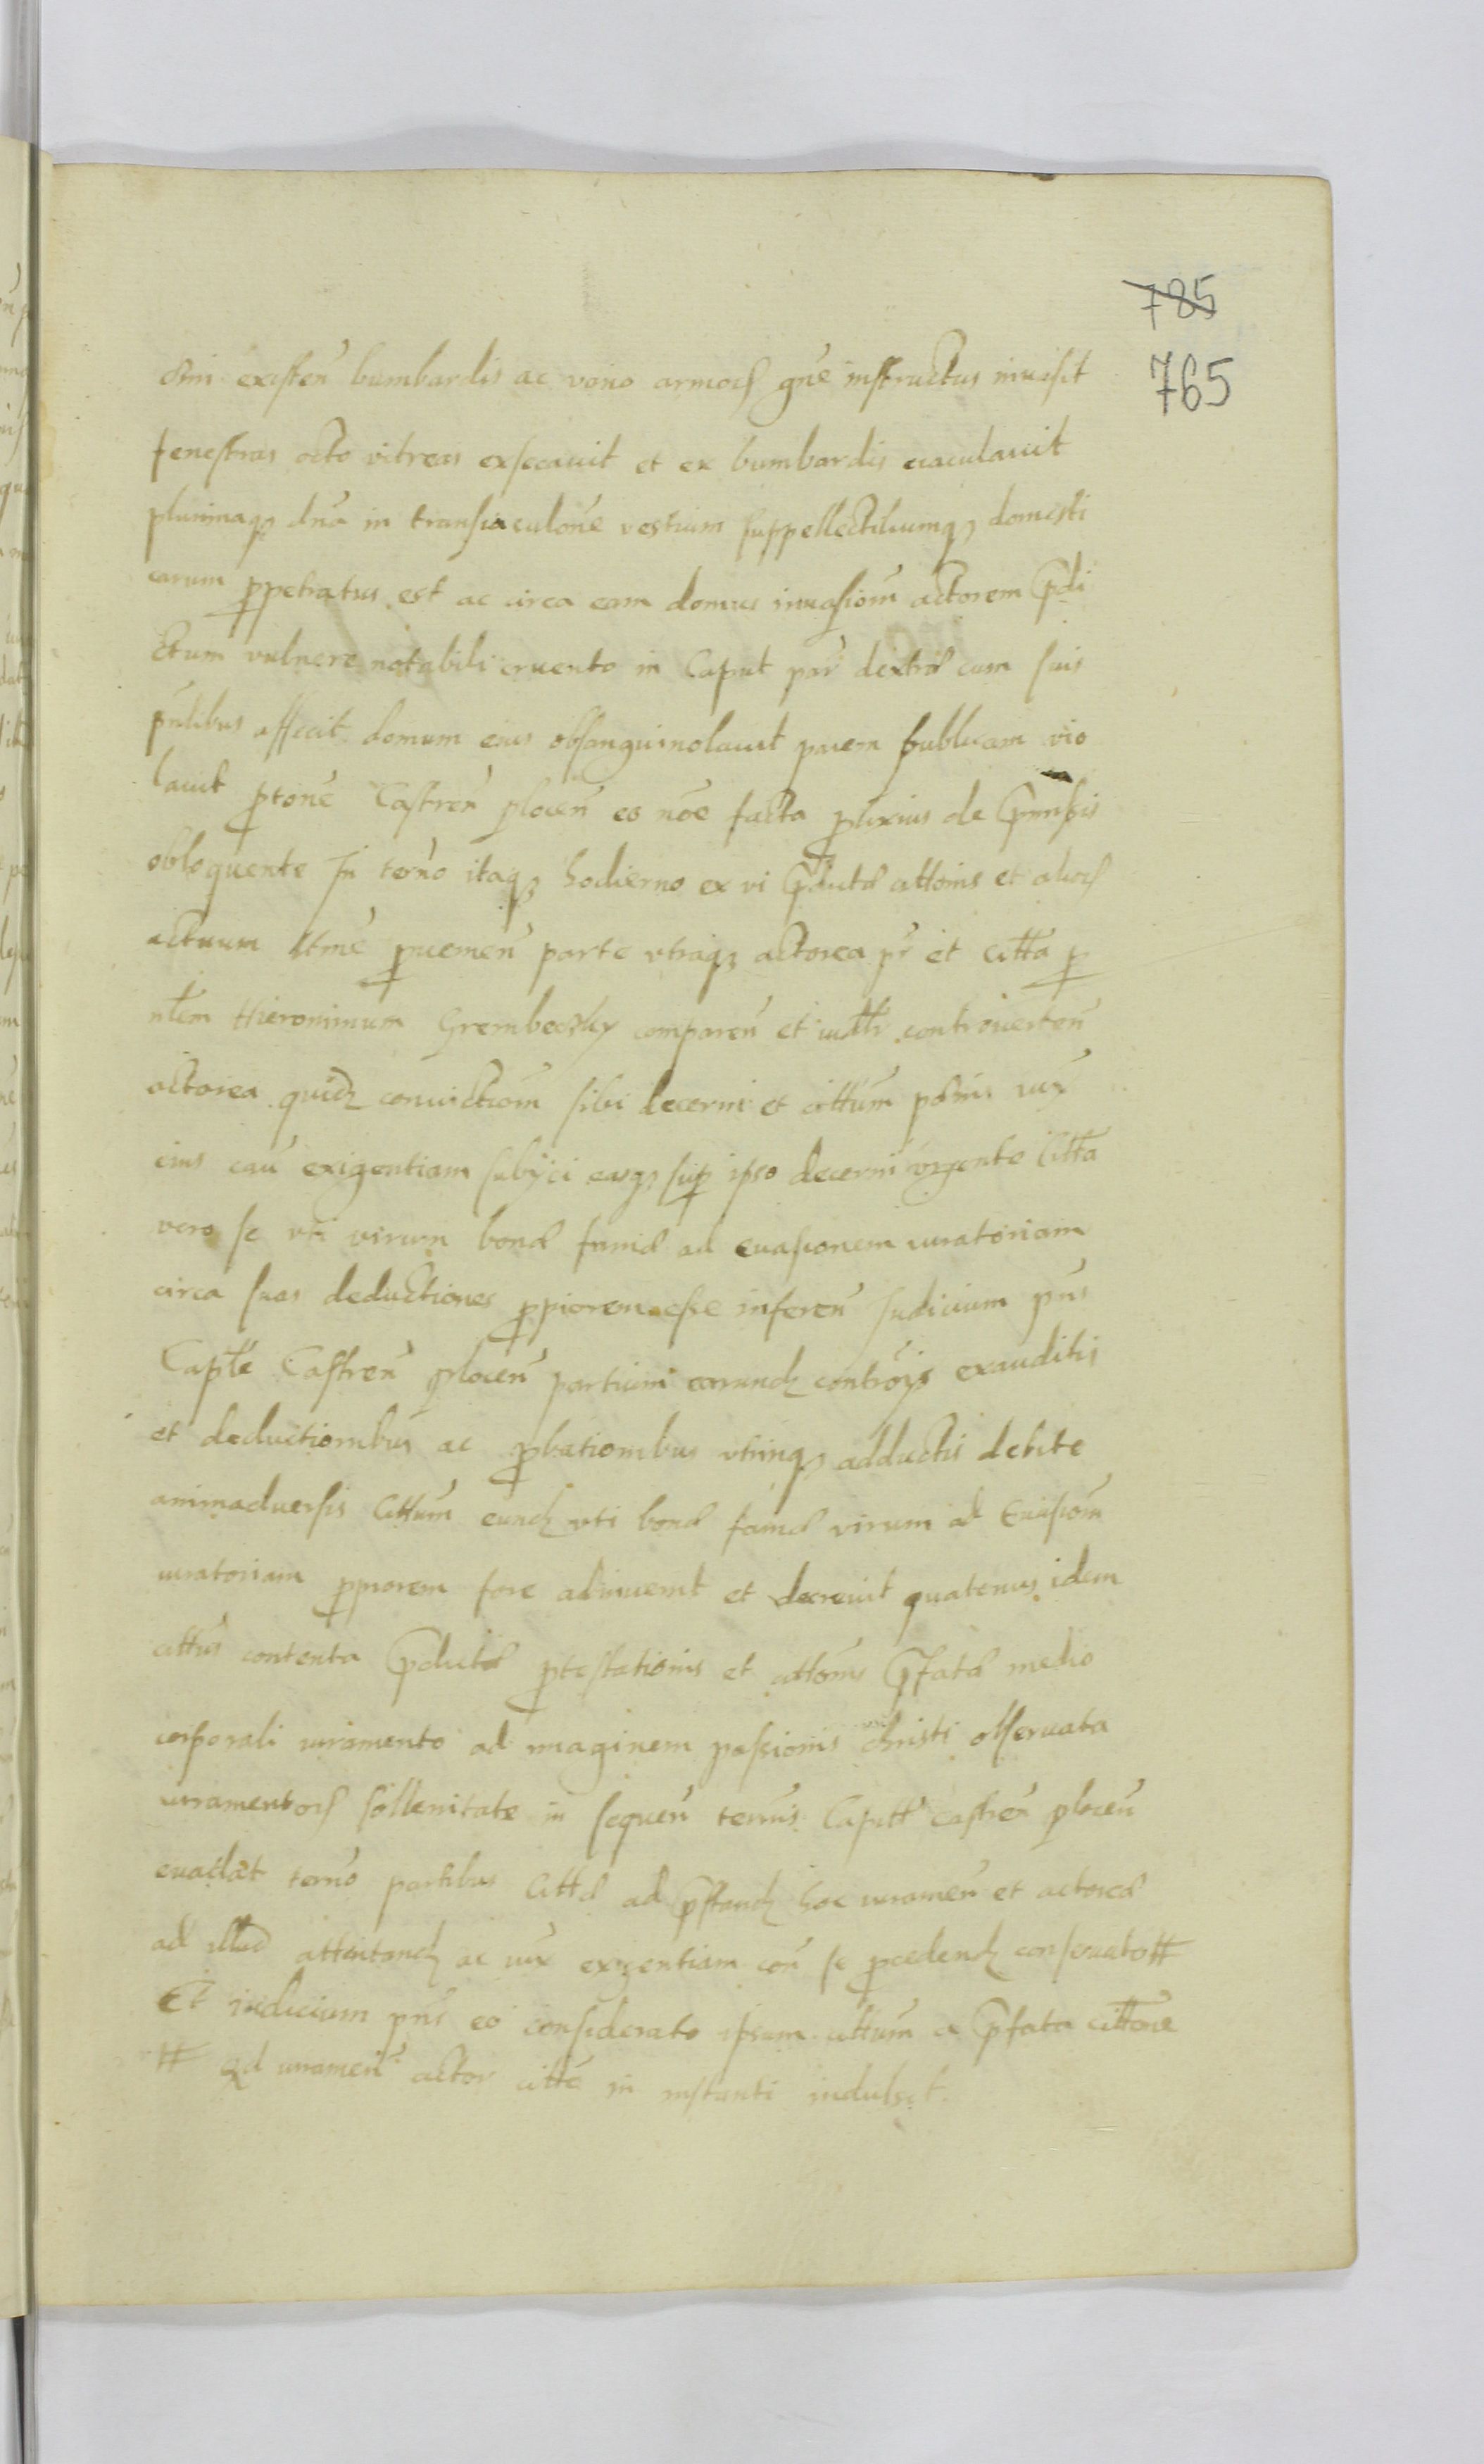 785
765
existen̄ bumbardis ac vario armorꝝ gn̄e instructus inuasit
fenestras octo vitreas exsecauit et ex bumbardis eiaculauit
plurimaqꝫ dn̄a in transiaculon̄e vestium suppellectiliumqꝫ domesti
carum ꝑpetratus est ac circa eam domus inuasiom̄ actorem p̄di
ctum vulnere notabili cruento in Caput par̄ dextrӕ cum suis
affecit domum eius obsanguinolauit pacem publicam vio
lauit ꝓton̄e Castren̄ plocen̄ eo no͞e facta ꝓlixius de p̄missis
obloquente In term̄o itaqꝫ hodierno ex vi p̄dictӕ cittonis et aliorꝝ
actuum ltm̄e ꝓuenien̄ parte vtraqꝫ actorea pr̄ et citta ꝑ
nłem Hieronimum Grembeczky comparen̄ et iudłr controuerten̄
actorea quidꝫ conuictiom̄ sibi decerni et cittum pœnis iux̄
eius cau̅ exigentiam subijci easqꝫ suꝑ ipso decerni vrgente Citta
vero se vti virum bonӕ famӕ ad euasionem iuratoriam
circa suas deductiones ꝓpiorem esse inferen̄ Iudicium pn̄s
Capłe Castren̄ plocen̄ partium earundꝫ controu̅ijs exauditis
et deductionibus ac ꝓbationibus vtrinqꝫ adductis debite
animaduersis Cittum eundꝫ vti bonӕ famӕ virum ad Euasiom̄
iuratoriam ꝓpiorem fore adinuenit et decreuit quatenus idem
cittus contenta p̄dictӕ ꝓtestationis et cittonis p̄fatӕ medio
corporali iuramento ad imaginem passionis christi obseruata
iuramentorꝝ sollenitate in sequen̄ termīs Capitł castren̄ plocen̄
euadat term̄o partibus Cittӕ ad p̄standꝫ hoc iuramen̄ et actoreӕ
ad illud attentandꝫ ac iux̄ exigentiam con̄ se ꝓcedendꝫ conseruato #
Et iudicium pn̄s eo considerato ipsum cittum a p̄fata citton̄e
# qd iuramen̄ actor citto in instanti indulsit.